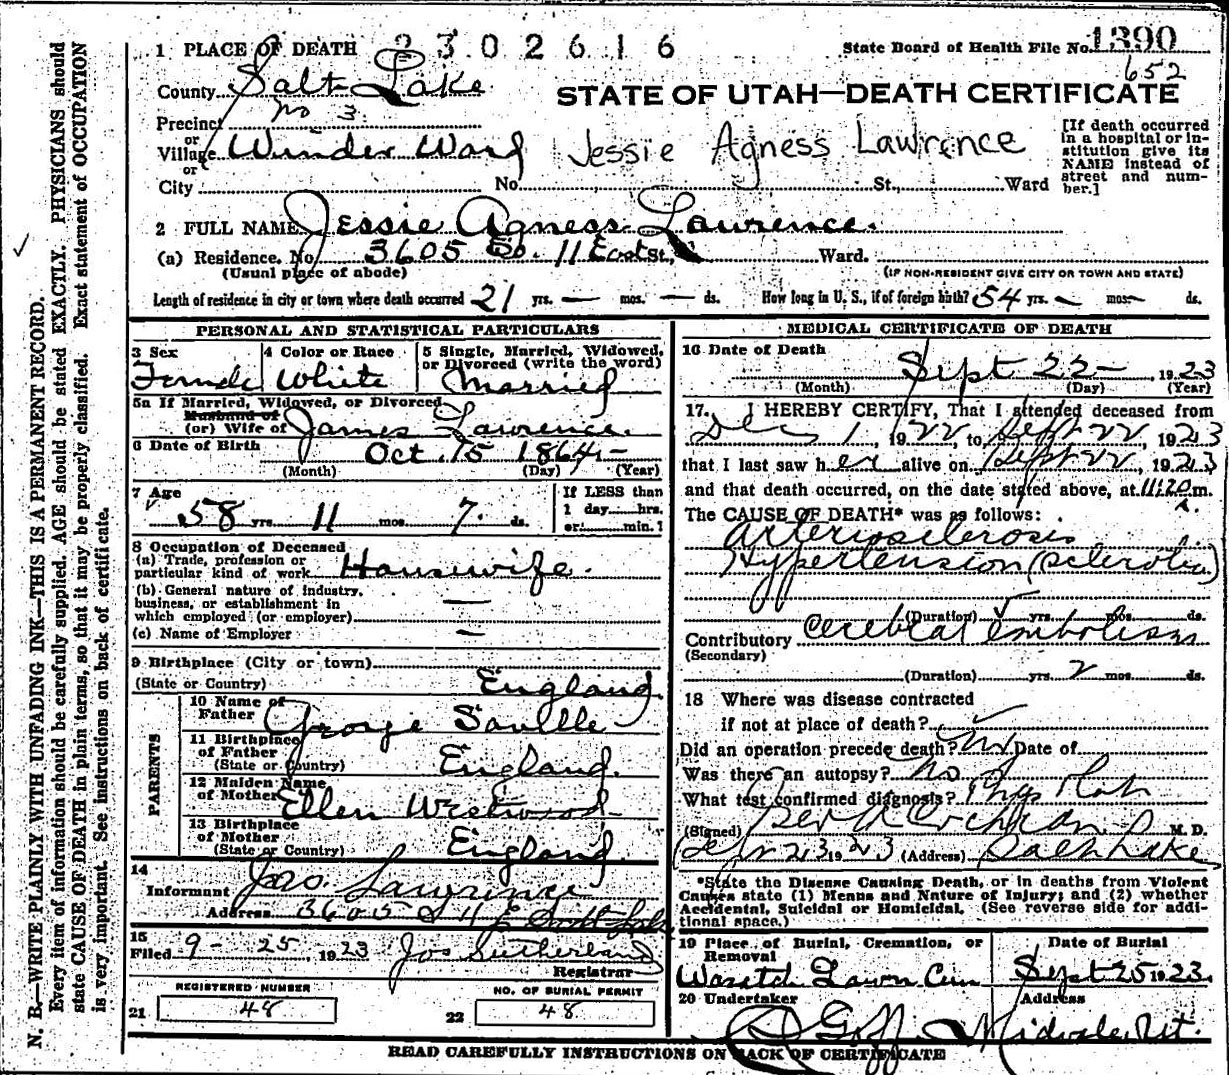 1 PLACE OF DEATH 2302616 State Board of Health File No. 1390
652
County Salt Lake
STATE OF UTAH—DEATH CERTIFICATE
Precinct No 3
or
Village Winder Ward Jessie Agness Lawrence
or
City No. St., Ward
[If death occurred in a hospital or institution give its NAME instead of street and number.]
2 FULL NAME Jessie Agness Lawrence.
(a) Residence. No. 3605 So. 11 East St., Ward.
(Usual place of abode) (IF NON-RESIDENT GIVE CITY OR TOWN AND STATE)
Length of residence in city or town where death occurred 21 yrs. — mos. — ds. How long in U. S., if of foreign birth? 54 yrs. — mos. — ds.
PERSONAL AND STATISTICAL PARTICULARS
3 Sex Female
4 Color or Race White
5 Single, Married, Widowed, or Divorced (write the word) Married
5a If Married, Widowed, or Divorced
Husband of
(or) Wife of James Lawrence.
6 Date of Birth Oct. 15 1864 —
(Month) (Day) (Year)
7 Age 58 yrs. 11 mos. 7. ds.
If LESS than
1 day hrs.
or min. ?
8 Occupation of Deceased
(a) Trade, profession or
particular kind of work Housewife.
(b) General nature of industry,
business, or establishment in
which employed (or employer) —
(c) Name of Employer —
9 Birthplace (City or town)
(State or Country) England
PARENTS
10 Name of
Father George Saville
11 Birthplace
of Father
(State or Country) England.
12 Maiden Name
of Mother Ellen Westwood
13 Birthplace
of Mother
(State or Country) England
14
Informant Jas. Lawrence
Address 3605 S 11 E Salt Lake
15
Filed 9 - 25 1923 Jos Sutherland
Registrar
REGISTERED NUMBER
21 48
NO. OF BURIAL PERMIT
22 48
MEDICAL CERTIFICATE OF DEATH
16 Date of Death Sept 22 — 1923
(Month) (Day) (Year)
17. I HEREBY CERTIFY, That I attended deceased from
Dec 1, 1922, to Sept 22, 1923
that I last saw her alive on Sept 22, 1923
and that death occurred, on the date stated above, at 11:20 m.
The CAUSE OF DEATH* was as follows:
Arteriosclerosis
Hypertension (sclerotic)
(Duration) 5 yrs. mos. ds.
Contributory Cerebral Embolism
(Secondary)
(Duration) yrs. 2 mos. ds.
18 Where was disease contracted
if not at place of death?
Did an operation precede death? No Date of
Was there an autopsy? No
What test confirmed diagnosis?
(Signed) Cochran M. D.
Sept 23 1923 (Address) Salt Lake
*State the Disease Causing Death, or in deaths from Violent
Causes state (1) Means and Nature of Injury; and (2) whether
Accidental, Suicidal or Homicidal. (See reverse side for additional space.)
19 Place of Burial, Cremation, or Removal Wasatch Lawn Cem
Date of Burial Sept 25 1923.
20 Undertaker Goff
Address Midvale, Ut.
READ CAREFULLY INSTRUCTIONS ON BACK OF CERTIFICATE
N. B.—WRITE PLAINLY WITH UNFADING INK—THIS IS A PERMANENT RECORD.
Every item of information should be carefully supplied. AGE should be stated EXACTLY. PHYSICIANS should
state CAUSE OF DEATH in plain terms, so that it may be properly classified. Exact statement of OCCUPATION
is very important. See instructions on back of certificate.